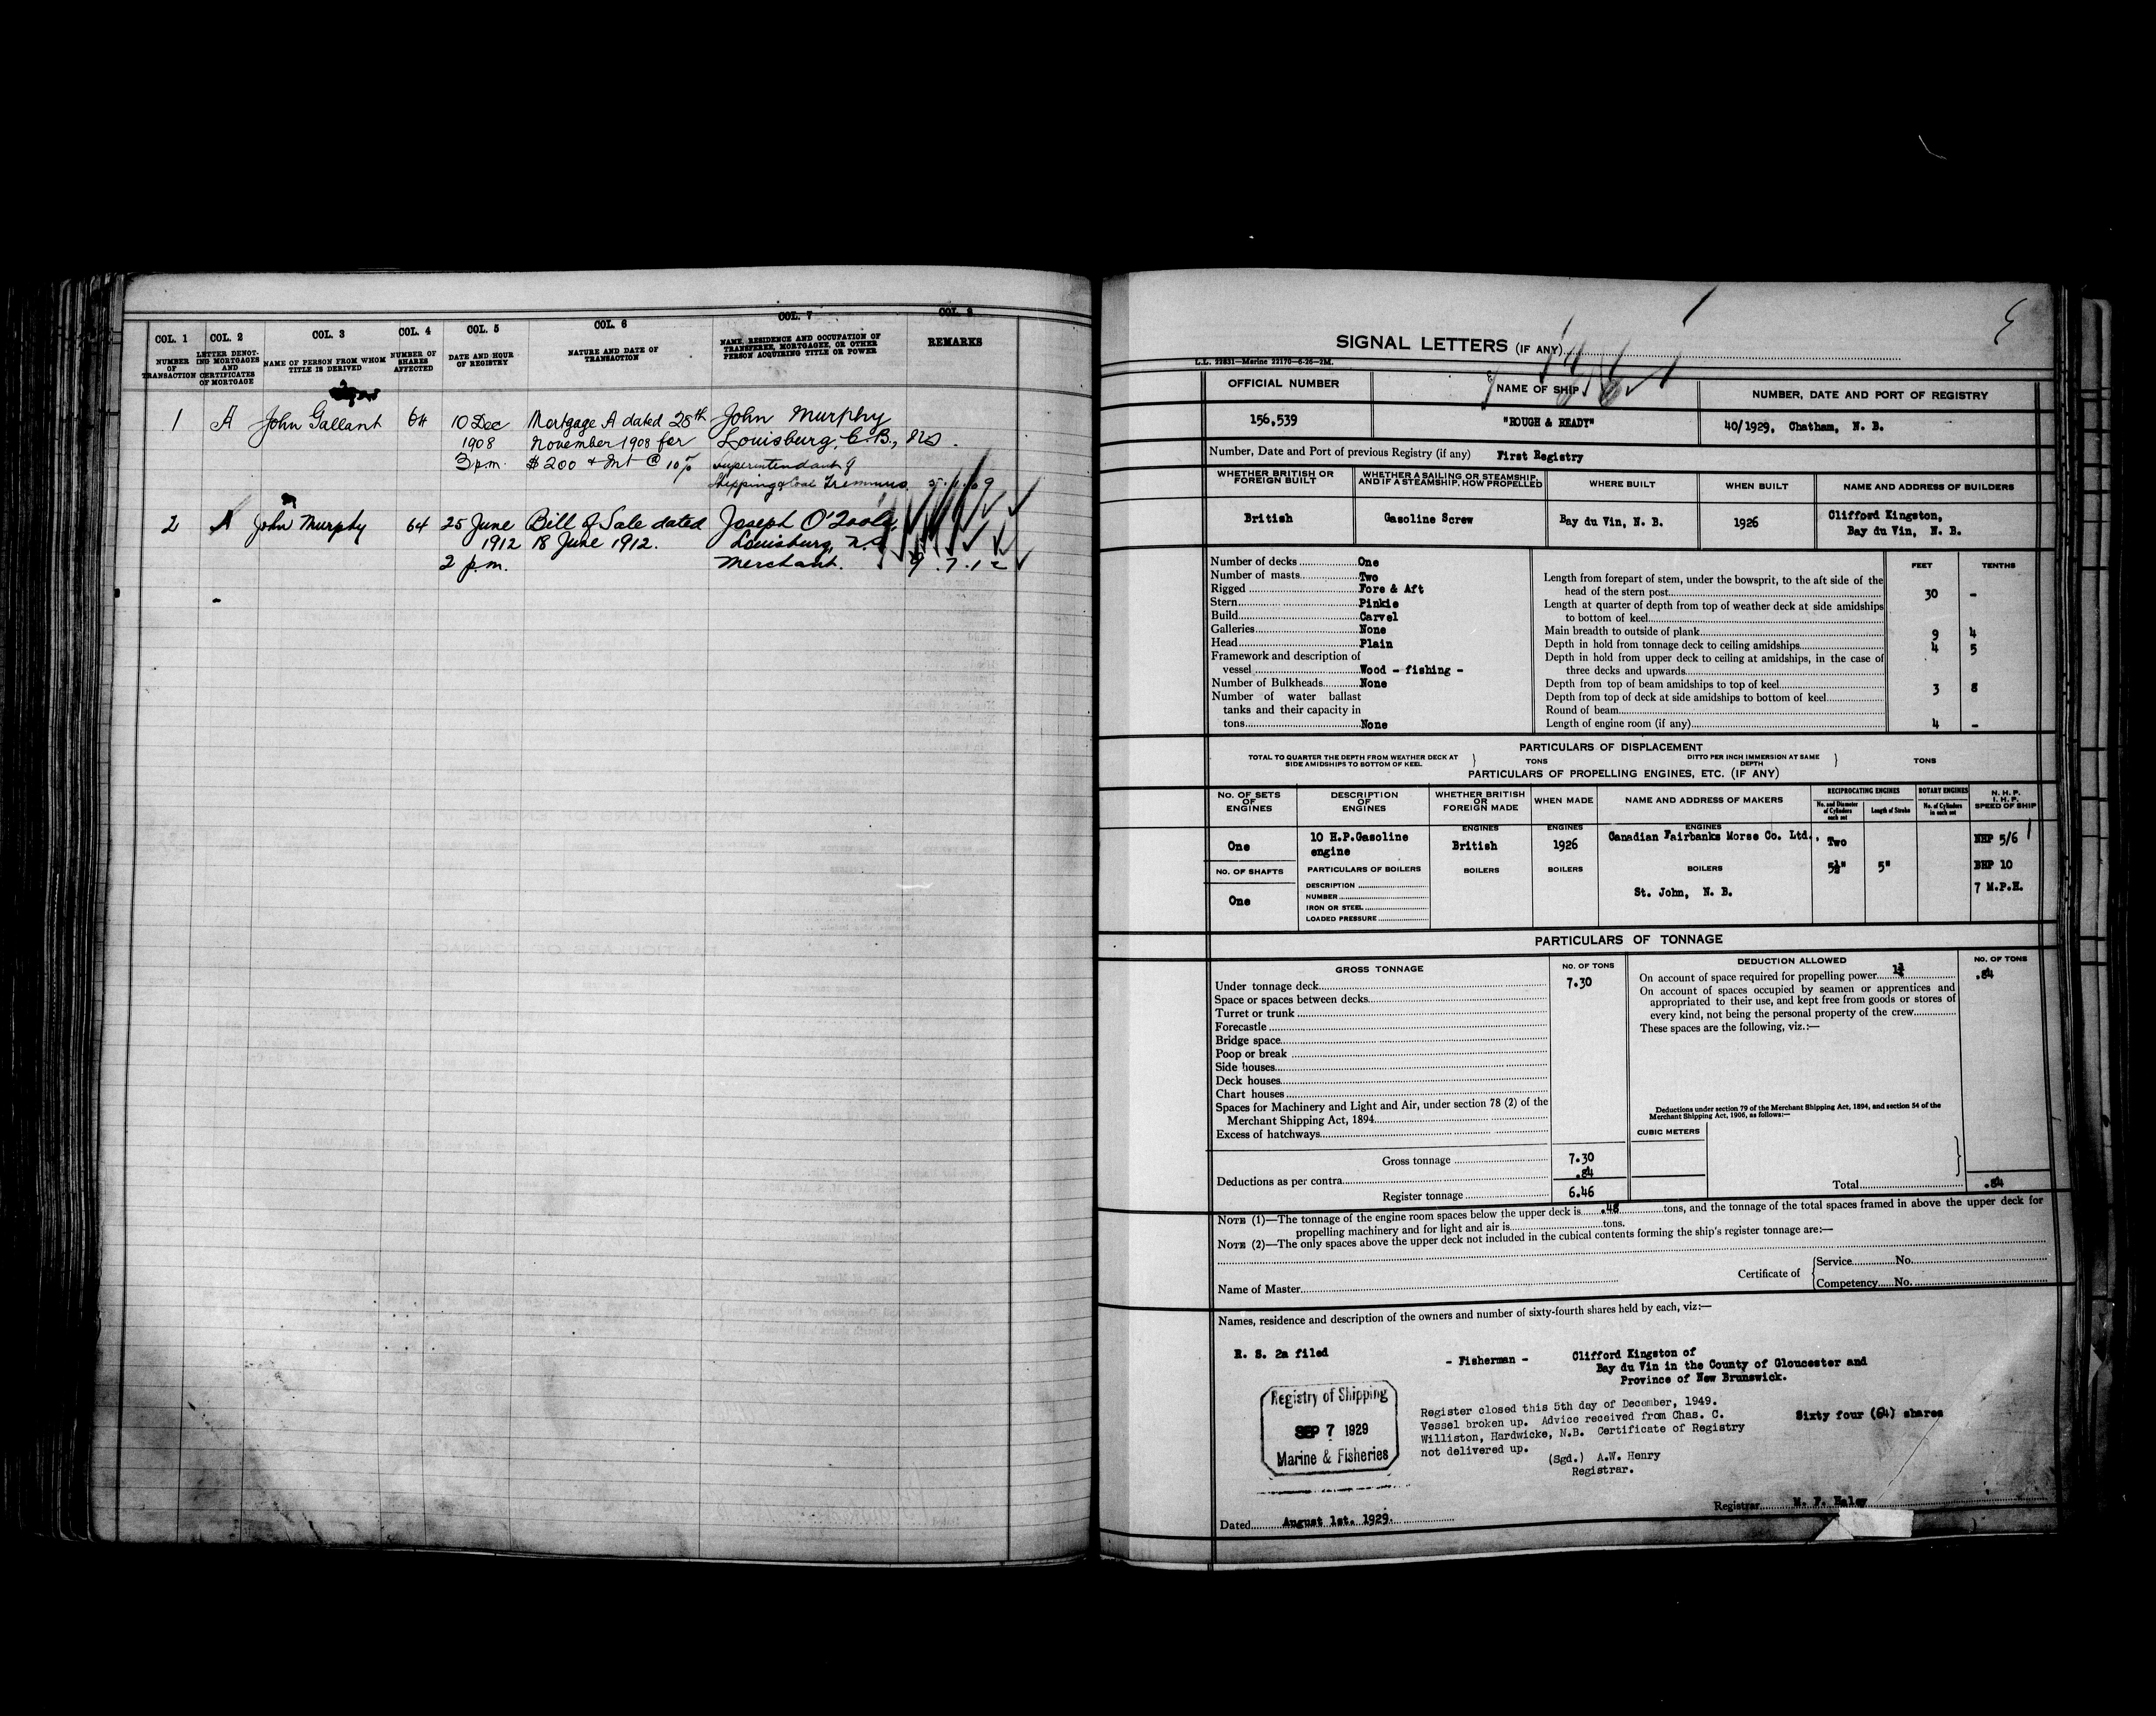 COL. 1 COL. 2 COL. 3 COL. 4 COL. 5 COL. 6 COL. 7 COL. 8
NUMBER OF TRANSACTION
LETTER DENOTING MORTGAGES AND CERTIFICATES OF MORTGAGE
NAME OF PERSON FROM WHOM TITLE IS DERIVED
NUMBER OF SHARES AFFECTED
DATE AND HOUR OF REGISTRY
NATURE AND DATE OF TRANSACTION
NAME, RESIDENCE AND OCCUPATION OF TRANSFEREE, MORTGAGEE, OR OTHER PERSON ACQUIRING TITLE OR POWER
REMARKS
1 A John Gallant 64 10 Dec Mortgage A dated 28th John Murphy
1908 November 1908 for Louisburg, C.B., NS.
3 p.m. $200 + Int @ 10% Superintendant of
Shipping & Coal
2 A John Murphy 64 25 June Bill of Sale dated Joseph O'Toole,
1912 18 June 1912. Louisburg, N.S.
2 p.m. Merchant. 9.7.12
SIGNAL LETTERS (IF ANY)
L.L. 22831—Marine 22170—6-26—7M.
OFFICIAL NUMBER NAME OF SHIP NUMBER, DATE AND PORT OF REGISTRY
156,539 "ROUGH & READY" 40/1929, Chatham, N. B.
Number, Date and Port of previous Registry (if any) First Registry
WHETHER BRITISH OR FOREIGN BUILT
WHETHER A SAILING OR STEAMSHIP, AND IF A STEAMSHIP, HOW PROPELLED
WHERE BUILT WHEN BUILT NAME AND ADDRESS OF BUILDERS
British Gasoline Screw Bay du Vin, N. B. 1926 Clifford Kingston,
Bay du Vin, N. B.
Number of decks One
Number of masts Two
Rigged Fore & Aft
Stern Pinkie
Build Carvel
Galleries None
Head Plain
Framework and description of
vessel Wood - fishing -
Number of Bulkheads None
Number of water ballast
tanks and their capacity in
tons None
FEET TENTHS
Length from forepart of stem, under the bowsprit, to the aft side of the
head of the stern post 30 -
Length at quarter of depth from top of weather deck at side amidships
to bottom of keel
Main breadth to outside of plank 9 4
Depth in hold from tonnage deck to ceiling amidships 4 5
Depth in hold from upper deck to ceiling at amidships, in the case of
three decks and upwards
Depth from top of beam amidships to top of keel 3 8
Depth from top of deck at side amidships to bottom of keel
Round of beam
Length of engine room (if any) 4 -
PARTICULARS OF DISPLACEMENT
TOTAL TO QUARTER THE DEPTH FROM WEATHER DECK AT SIDE AMIDSHIPS TO BOTTOM OF KEEL } TONS DITTO PER INCH IMMERSION AT SAME DEPTH } TONS
PARTICULARS OF PROPELLING ENGINES, ETC. (IF ANY)
No. OF SETS OF ENGINES
DESCRIPTION OF ENGINES
WHETHER BRITISH OR FOREIGN MADE
WHEN MADE
NAME AND ADDRESS OF MAKERS
RECIPROCATING ENGINES
No. and Diameter of Cylinders each set
Length of Stroke
ROTARY ENGINES
No. of Cylinders in each set
N. H. P. I. H. P. SPEED OF SHIP
ENGINES ENGINES ENGINES
One 10 H.P. Gasoline engine British 1926 Canadian Fairbanks Morse Co. Ltd., Two NHP 5/6
No. OF SHAFTS PARTICULARS OF BOILERS BOILERS BOILERS BOILERS 5½" 5" BHP 10
One
DESCRIPTION
NUMBER
IRON OR STEEL
LOADED PRESSURE
St. John, N. B. 7 M.P.H.
PARTICULARS OF TONNAGE
GROSS TONNAGE No. OF TONS
Under tonnage deck 7.30
Space or spaces between decks
Turret or trunk
Forecastle
Bridge space
Poop or break
Side houses
Deck houses
Chart houses
Spaces for Machinery and Light and Air, under section 78 (2) of the
Merchant Shipping Act, 1894
Excess of hatchways
Gross tonnage 7.30
Deductions as per contra .84
Register tonnage 6.46
DEDUCTION ALLOWED No. OF TONS
On account of space required for propelling power 1¾ .84
On account of spaces occupied by seamen or apprentices and
appropriated to their use, and kept free from goods or stores of
every kind, not being the personal property of the crew
These spaces are the following, viz.:—
Deductions under section 79 of the Merchant Shipping Act, 1894, and section 54 of the
Merchant Shipping Act, 1906, as follows:—
CUBIC METERS
Total .84
NOTE (1)—The tonnage of the engine room spaces below the upper deck is .48 tons, and the tonnage of the total spaces framed in above the upper deck for
propelling machinery and for light and air is tons.
NOTE (2)—The only spaces above the upper deck not included in the cubical contents forming the ship's register tonnage are:—
Name of Master
Certificate of { Service No.
Competency No.
Names, residence and description of the owners and number of sixty-fourth shares held by each, viz:—
R. S. 2a filed
- Fisherman - Clifford Kingston of
Bay du Vin in the County of Gloucester and
Province of New Brunswick.
Registry of Shipping
SEP 7 1929
Marine & Fisheries
Register closed this 5th day of December, 1949.
Vessel broken up. Advice received from Chas. C.
Williston, Hardwicke, N.B. Certificate of Registry
not delivered up.
(Sgd.) A.W. Henry
Registrar.
Sixty four (64) shares
Registrar M. F. Haley
Dated August 1st. 1929.